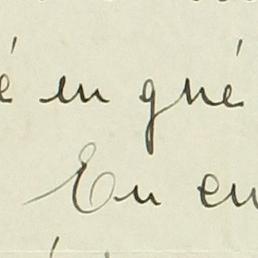 é en qué
En en